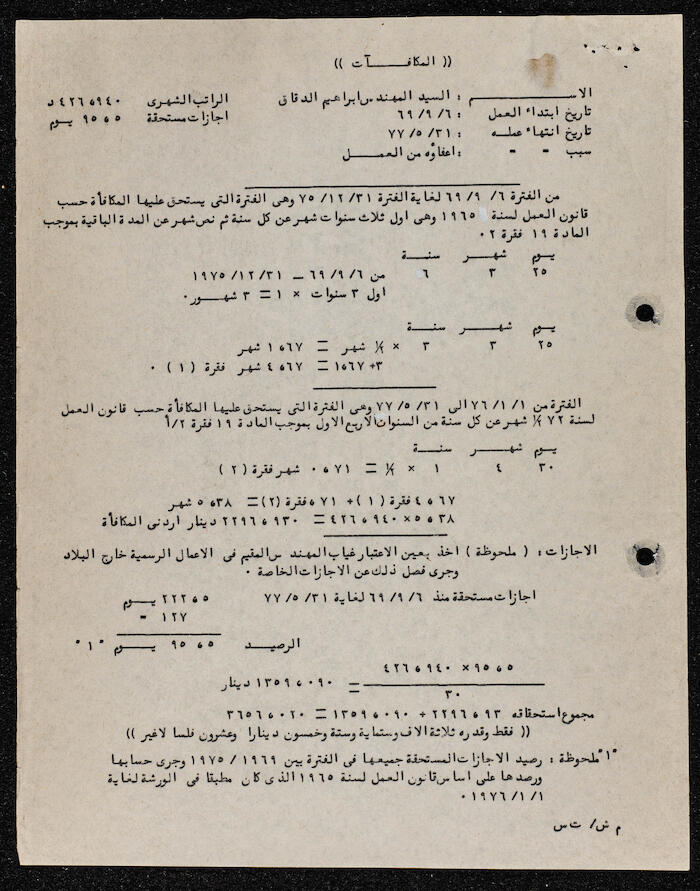 (( المكافــــآت ))
الاســــــم : السيد المهندس ابراهيم الدقاق الراتب الشهرى ٤٢٦٫٩٤٠ د
تاريخ ابتداء العمل : ٦٩/٩/٦ اجازات مستحقة ٩٥٫٥ يوم
تاريخ انتهاء عمله : ٧٧/٥/٣١
سبب - - : اعفاؤه من العمــل
من الفترة ٦٩/٩/٦ لغاية الفترة ٧٥/١٢/٣١ وهى الفترة التى يستحق عليها المكافأة حسب
قانون العمل لسنة ١٩٦٥ وهى اول ثلاث سنوات شهر عن كل سنة ثم نص شهر عن المدة الباقية بموجب
المادة ١٩ فقرة ٢٠
يــوم شهــر سنــة
٢٥ ٣ ٦ من ٦٩/٩/٦ ـ ١٩٧٥/١٢/٣١
اول ٣ سنوات × ١ = ٣ شهــور.
يــوم شهــر سنــة
٢٥ ٣ ٣ × ½ شهر = ١٫٦٧ شهر
٣+١٫٦٧ = ٤٫٦٧ شهر فقرة (١) .
الفترة من ٧٦/١/١ الى ٧٧/٥/٣١ وهى الفترة التى يستحق عليها المكافأة حسب قانون العمل
لسنة ٧٢ ½ شهر عن كل سنة من السنوات الاربع الاول بموجب المادة ١٩ فقرة ١/٢أ
يــوم شهــر سنــة
٣٠ ٤ ١ × ½ = ٠٫٧١ شهر فقرة (٢)
٤٫٦٧ فقرة (١) + ٫٧١ فقرة (٢) = ٥٫٣٨ شهر
٥٫٣٨×٤٢٦٫٩٤٠ = ٢٢٩٦٫٩٣٠ دينار اردنى المكافأة
الاجازات : ( ملحوظة ) اخذ بعين الاعتبار غياب المهندس المقيم فى الاعمال الرسمية خارج البلاد
وجرى فصل ذلك عن الاجازات الخاصة .
اجازات مستحقة منذ ٦٩/٩/٦ لغاية ٧٧/٥/٣١ ٢٢٢٫٥ يــوم
١٢٧ -
الرصيــد ٩٥٫٥ يــوم "١"
٩٥٫٥× ٤٢٦٫٩٤٠
= ١٣٥٩٫٠٩٠ دينار
٣٠
مجموع استحقاقه ٢٢٩٦٫٩٣ + ١٣٥٩٫٠٩٠ = ٣٦٥٦٫٠٢٠
(( فقط وقدره ثلاثة الاف وستماية وستة وخمسون دينارا وعشرون فلسا لاغير ))
"١" ملحوظة : رصيد الاجازات المستحقة جميعها فى الفترة بين ١٩٦٩/١٩٧٥ وجرى حسابها
ورصدها على اساس قانون العمل لسنة ١٩٦٥ الذى كان مطبقا فى الورشة لغاية
١٩٧٦/١/١ .
م ش/ ت س